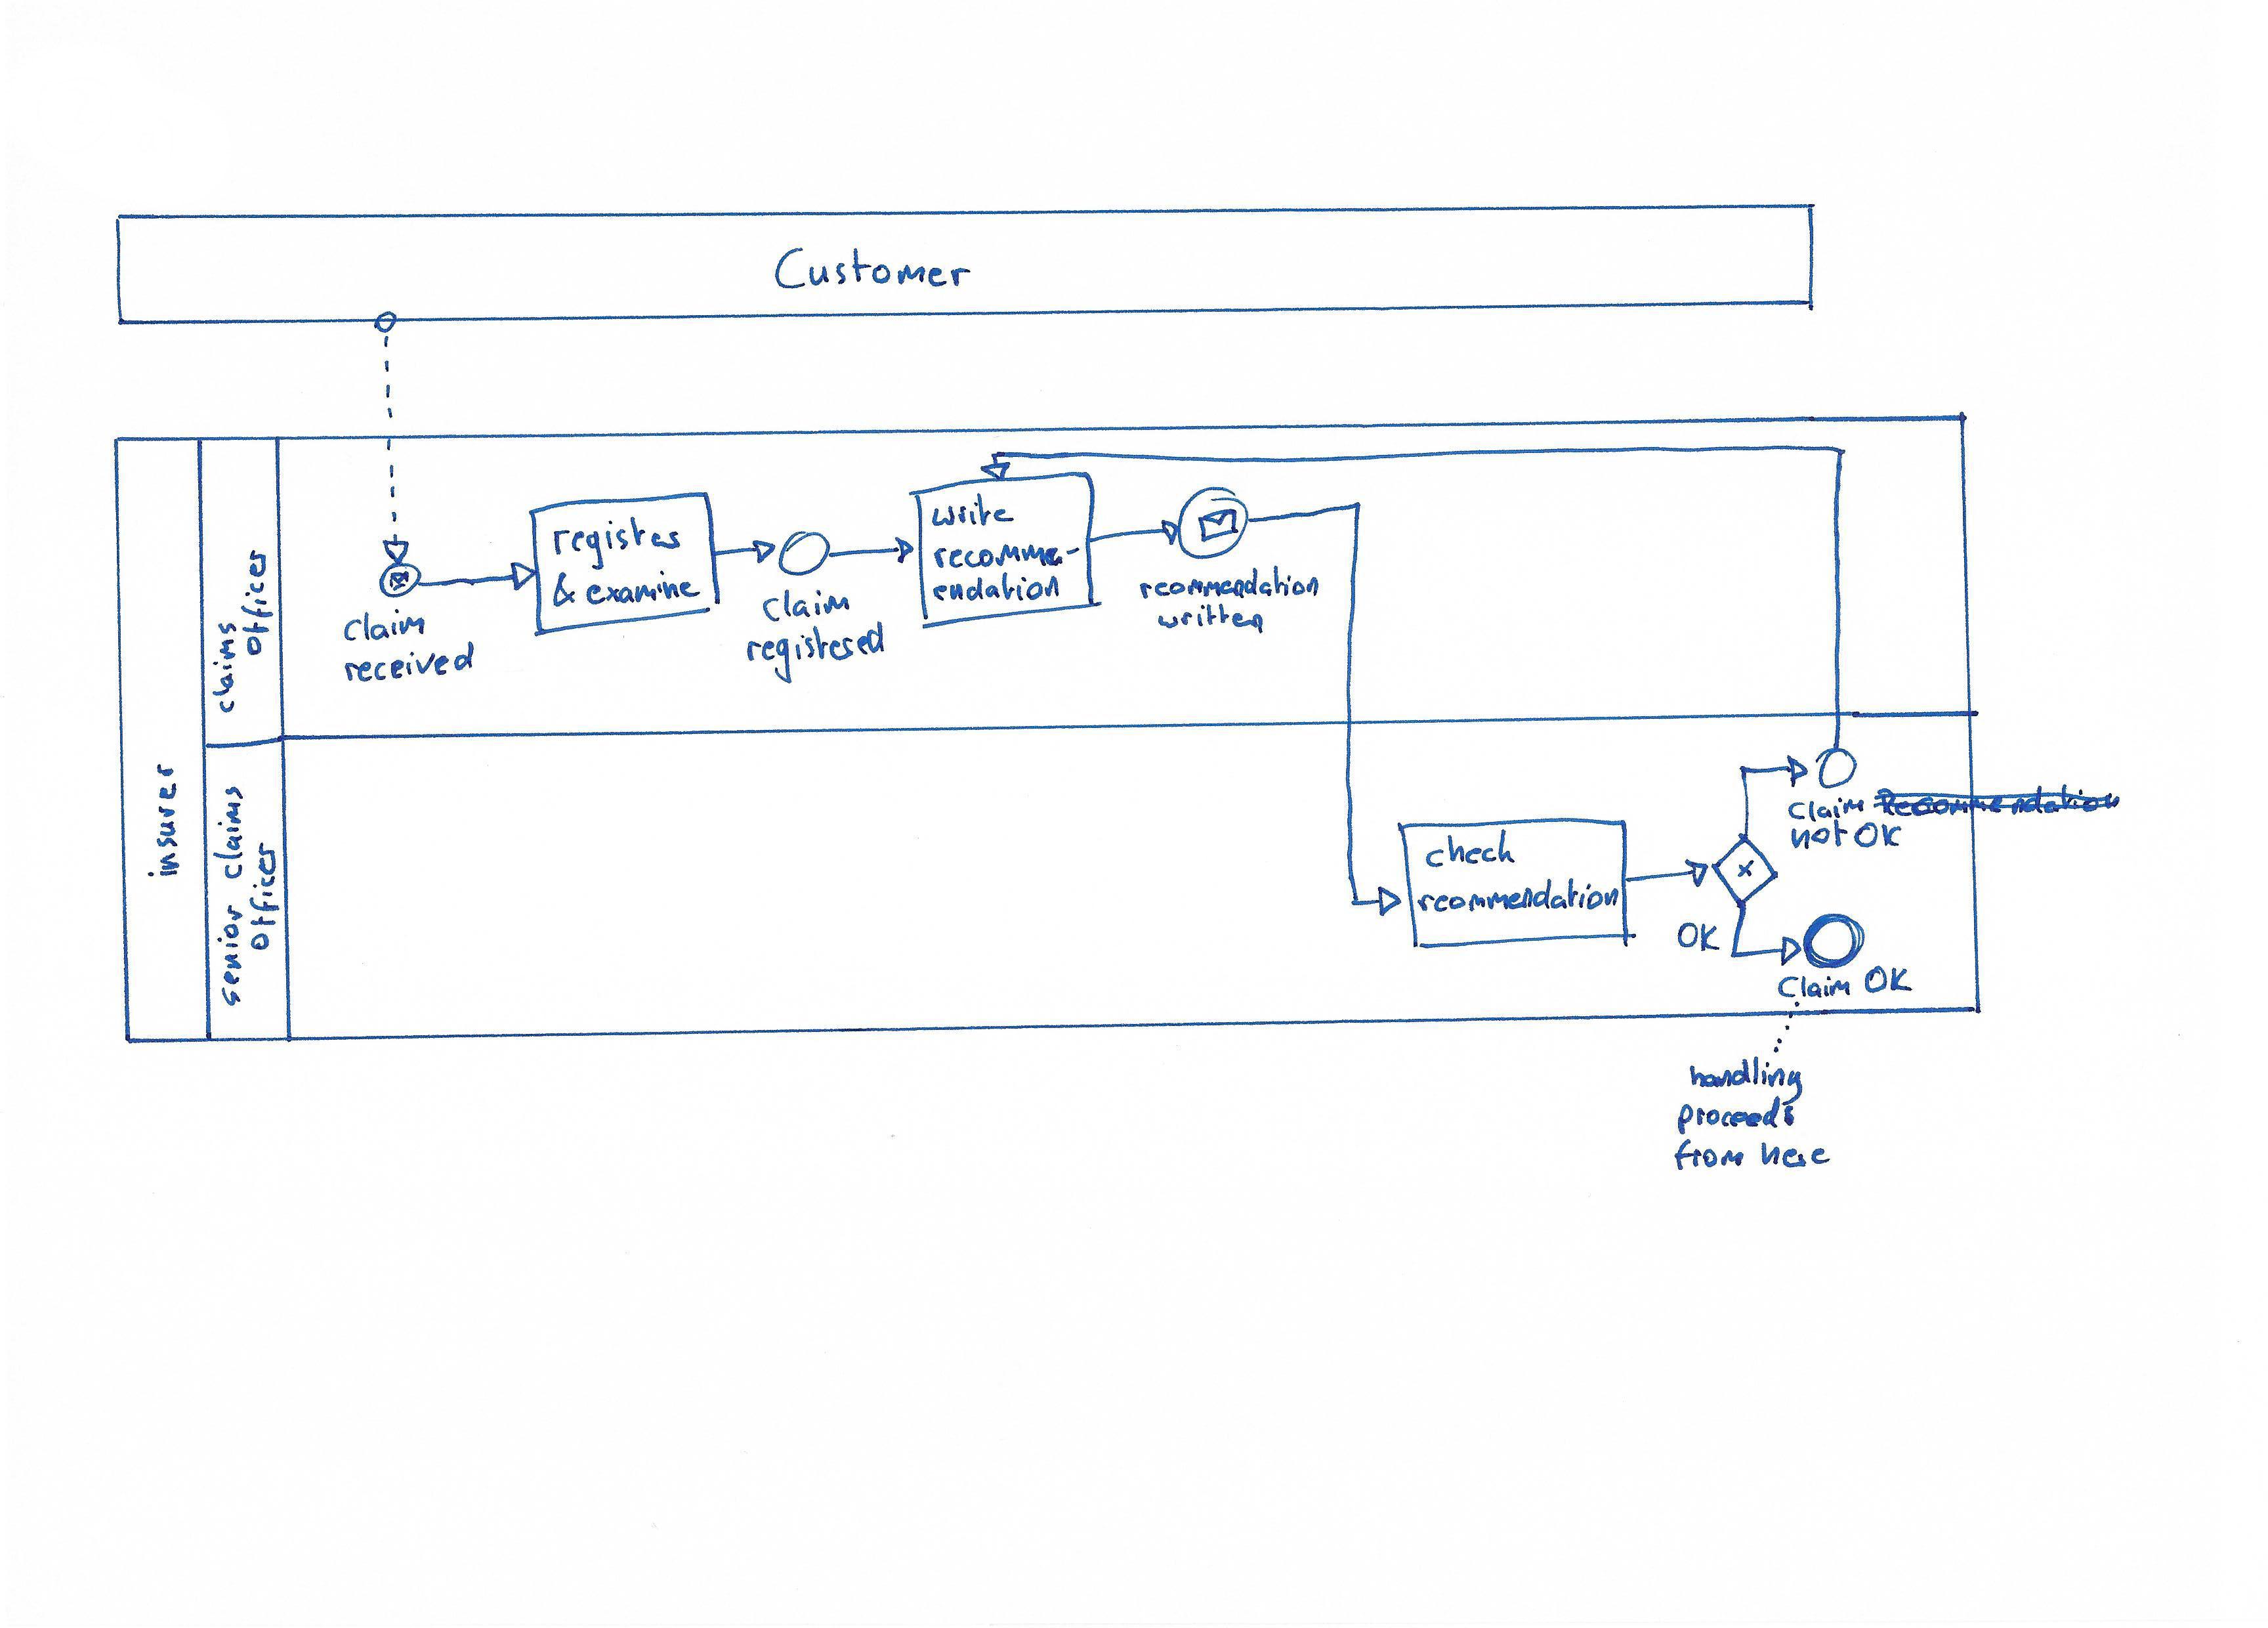 Customer
insurer
claims
officer
senior claims
officer
claim
received
register
& examine
claim
registered
write
recomme-
endation
recommendation
written
check
recommendation
Claim Recommendation
not OK
OK
Claim OK
handling
proceeds
from here